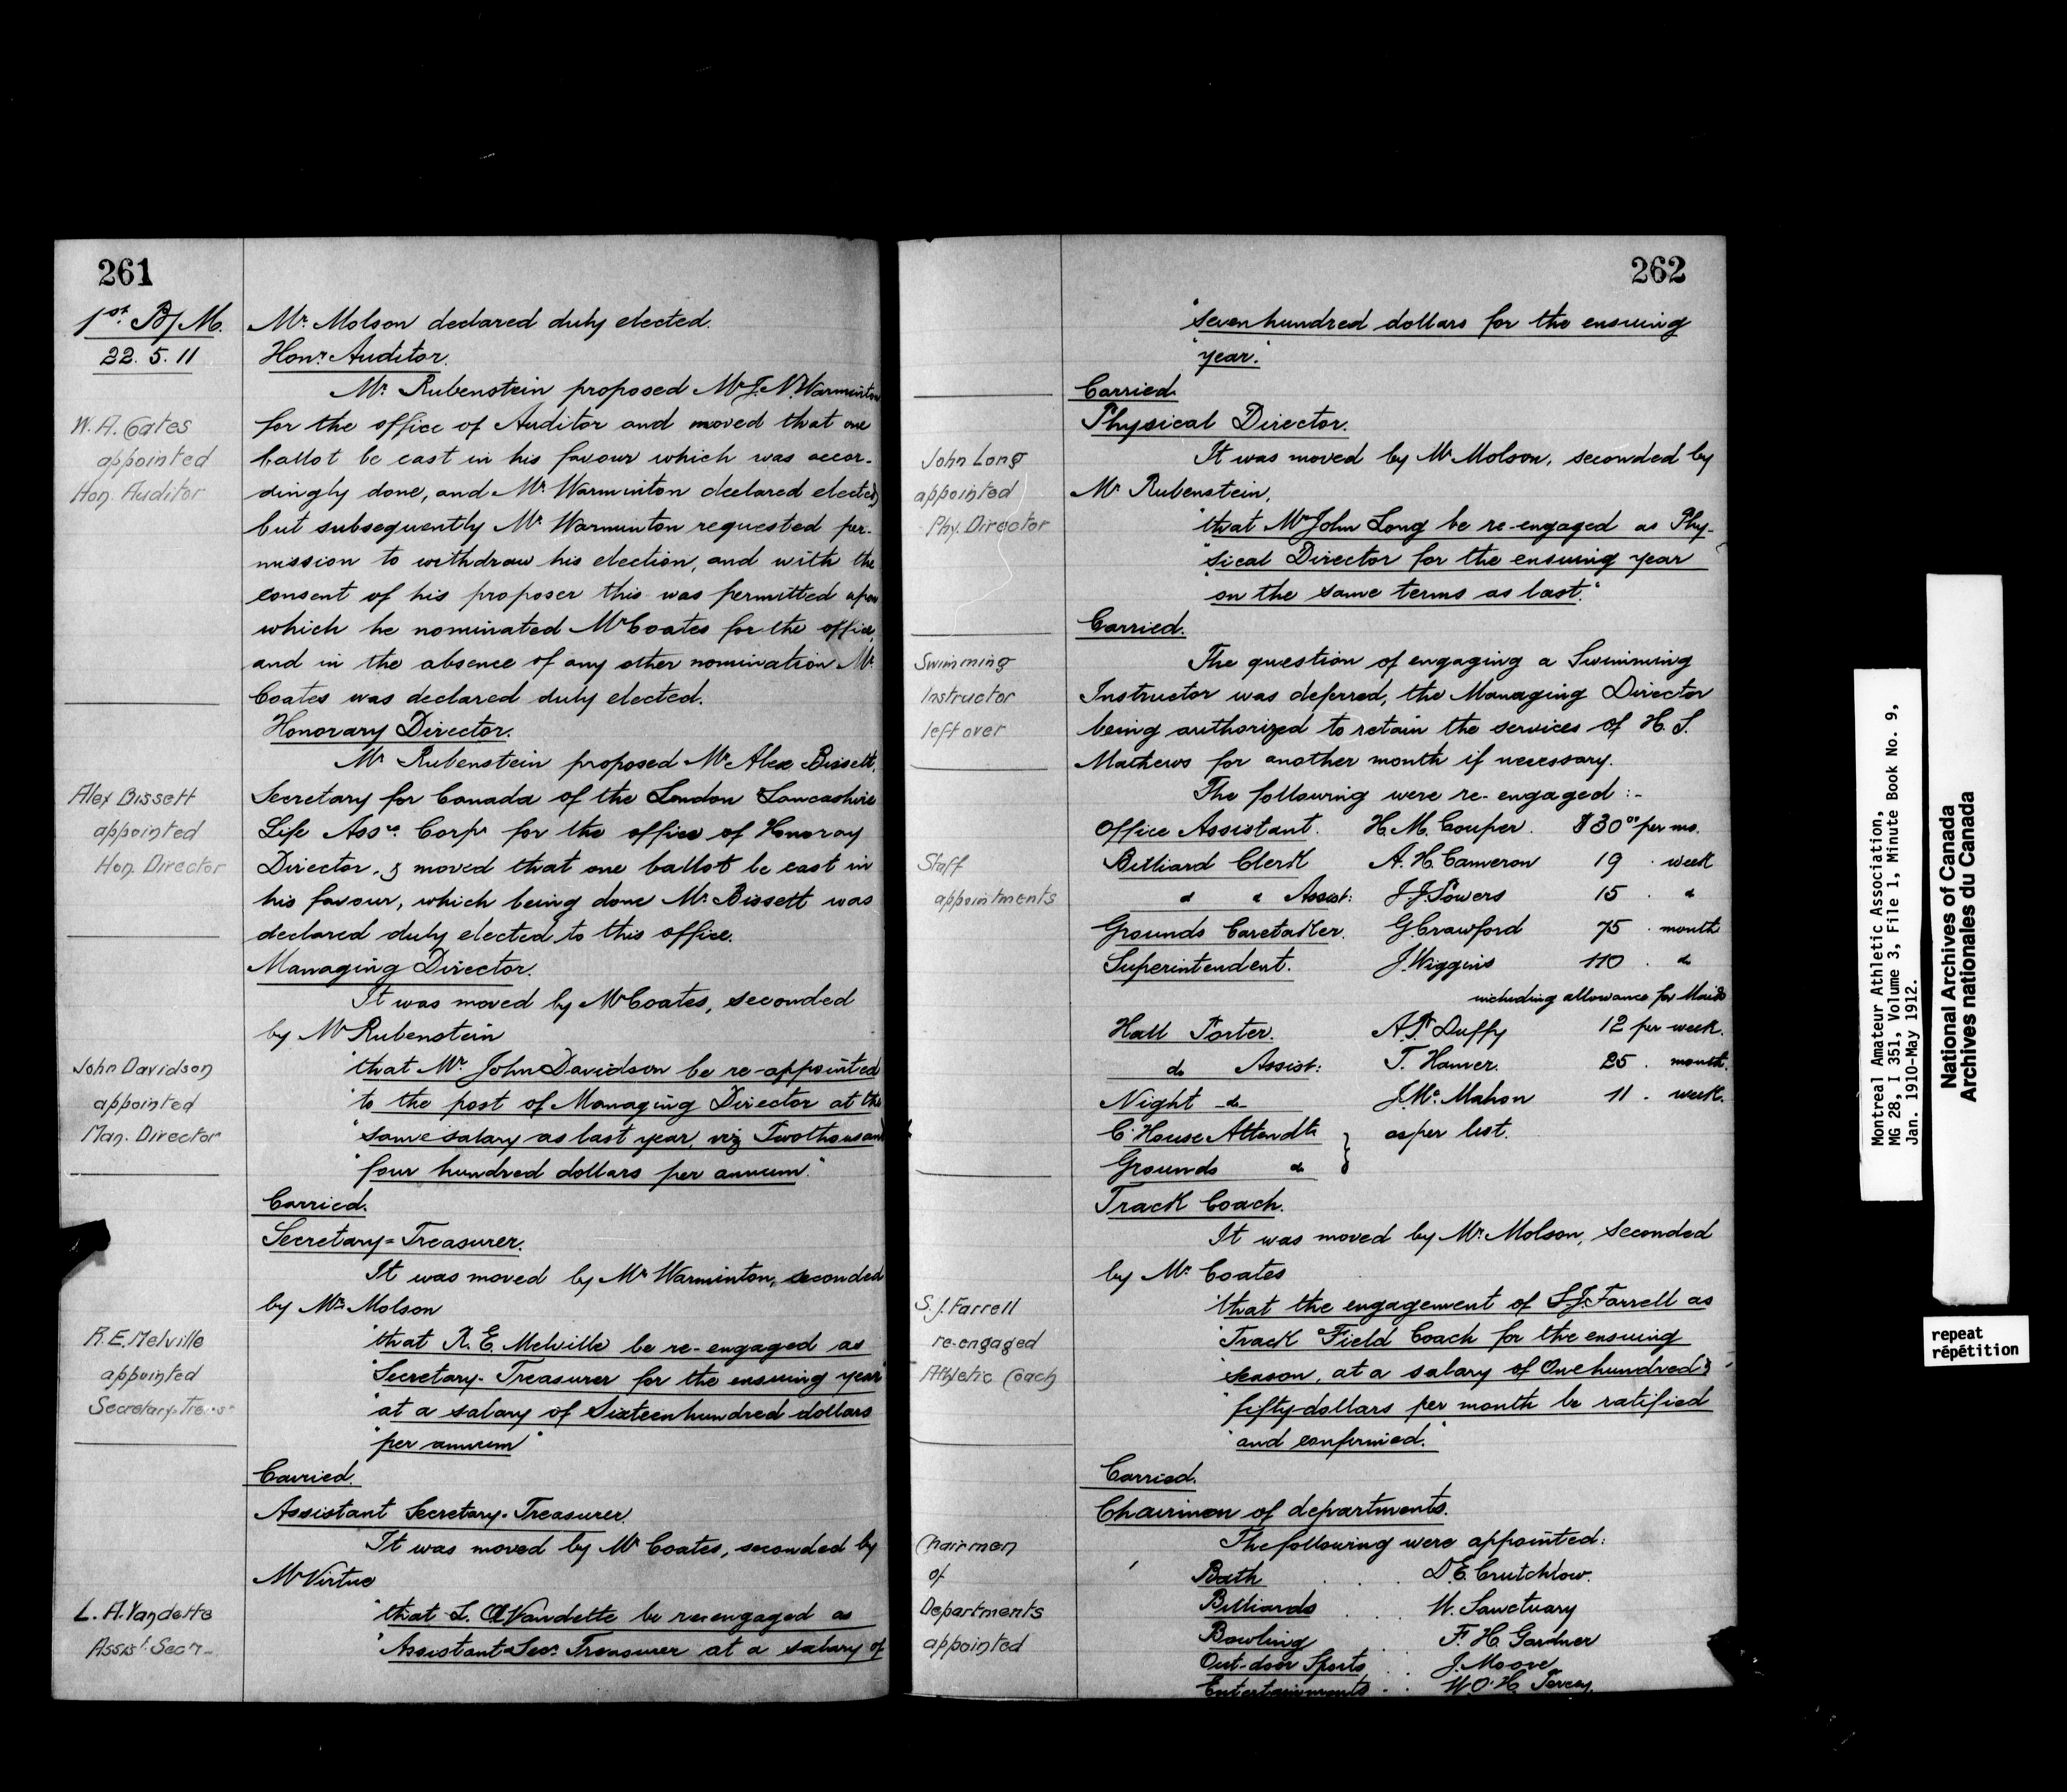 261
1st. B/M.
22. 5. 11
Mr. Molson declared duly elected.
Honr. Auditor.
Mr. Rubenstein proposed Mr J. N. Warminton
W. A. Coates
appointed
Hon. Auditor
for the office of Auditor and moved that one
ballot be cast in his favour which was accor-
dingly done, and Mr. Warminton declared elected,
but subsequently Mr. Warminton requested per-
mission to withdraw his election, and with the
consent of his proposer this was permitted upon
which he nominated Mr Coates for the office,
and in the absence of any other nomination Mr.
Coates was declared duly elected.
Honorary Director.
Mr. Rubenstein proposed Mr Alex Bissett,
Alex Bissett
appointed
Hon. Director
Secretary for Canada of the London Lancashire
Life Assce. Corpn. for the office of Honoray
Director, & moved that one ballot be cast in
his favour, which being done Mr. Bissett was
declared duly elected to this office.
Managing Director.
It was moved by Mr Coates, seconded
by Mr Rubenstein
John Davidson
appointed
Man. Director
"that Mr. John Davidson be re-appointed
"to the post of Managing Director at the
"same salary as last year, viz Two thousand
"four hundred dollars per annum."
Carried.
Secretary=Treasurer.
It was moved by Mr Warminton, seconded
by Mr. Molson
R. E. Melville
appointed
Secretary-Treas.
"that R. E. Melville be re-engaged as
"Secretary-Treasurer for the ensuing year
"at a salary of Sixteen hundred dollars
"per annum"
Carried.
Assistant Secretary-Treasurer.
It was moved by Mr Coates, seconded by
Mr Virtue
L. A. Vandette
Assist. Secr-
"that L. A. Vandette be re-engaged as
"Assistant-Sec. Treasurer at a salary of
262
"seven hundred dollars for the ensuing
"year."
Carried.
Physical Director.
It was moved by Mr Molson, seconded by
Mr Rubenstein,
John Long
appointed
Phy. Director
"that Mr John Long be re-engaged as Phy-
"sical Director for the ensuing year
"on the same terms as last."
Carried.
Swimming
Instructor
left over
The question of engaging a Swimming
Instructor was deferred, the Managing Director
being authorized to retain the services of H. S.
Mathews for another month if necessary.
The following were re-engaged :-
Staff
appointments
Office Assistant. H. M. Couper. $30 00 per mo.
Billiard Clerk A. H. Cameron 19 . week
" " Assist: J. J. Powers 15 . "
Grounds Caretaker. G. Crawford 75 . month
Superintendent. J. Wiggins 110 . do
including allowance for Maids
Hall Porter. A. P. Duffy 12 per week.
do Assist: T. Hamer. 25 . month.
Night do J. Mc. Mahon 11 . week.
C. House Attendts } as per list.
Grounds do
Track Coach.
It was moved by Mr. Molson, seconded
by Mr Coates
S. J. Farrell
re-engaged
Athletic Coach
"that the engagement of S. J. Farrell as
"Track & Field Coach for the ensuing
"season, at a salary of One hundred &
"fifty dollars per month be ratified
"and confirmed."
Carried.
Chairmen of departments.
The following were appointed:
Chairmen
of
Departments
appointed
Bath . . D. E. Crutchlow.
Billiards . . W. Sanctuary
Bowling . F. H. Gardner
Out-door Sports . . J. Moore
Entertainments . . W. O. H.
Montreal Amateur Athletic Association,
MG 28, I 351, Volume 3, File 1, Minute Book No. 9,
Jan. 1910-May 1912.
National Archives of Canada
Archives nationales du Canada
repeat
répétition